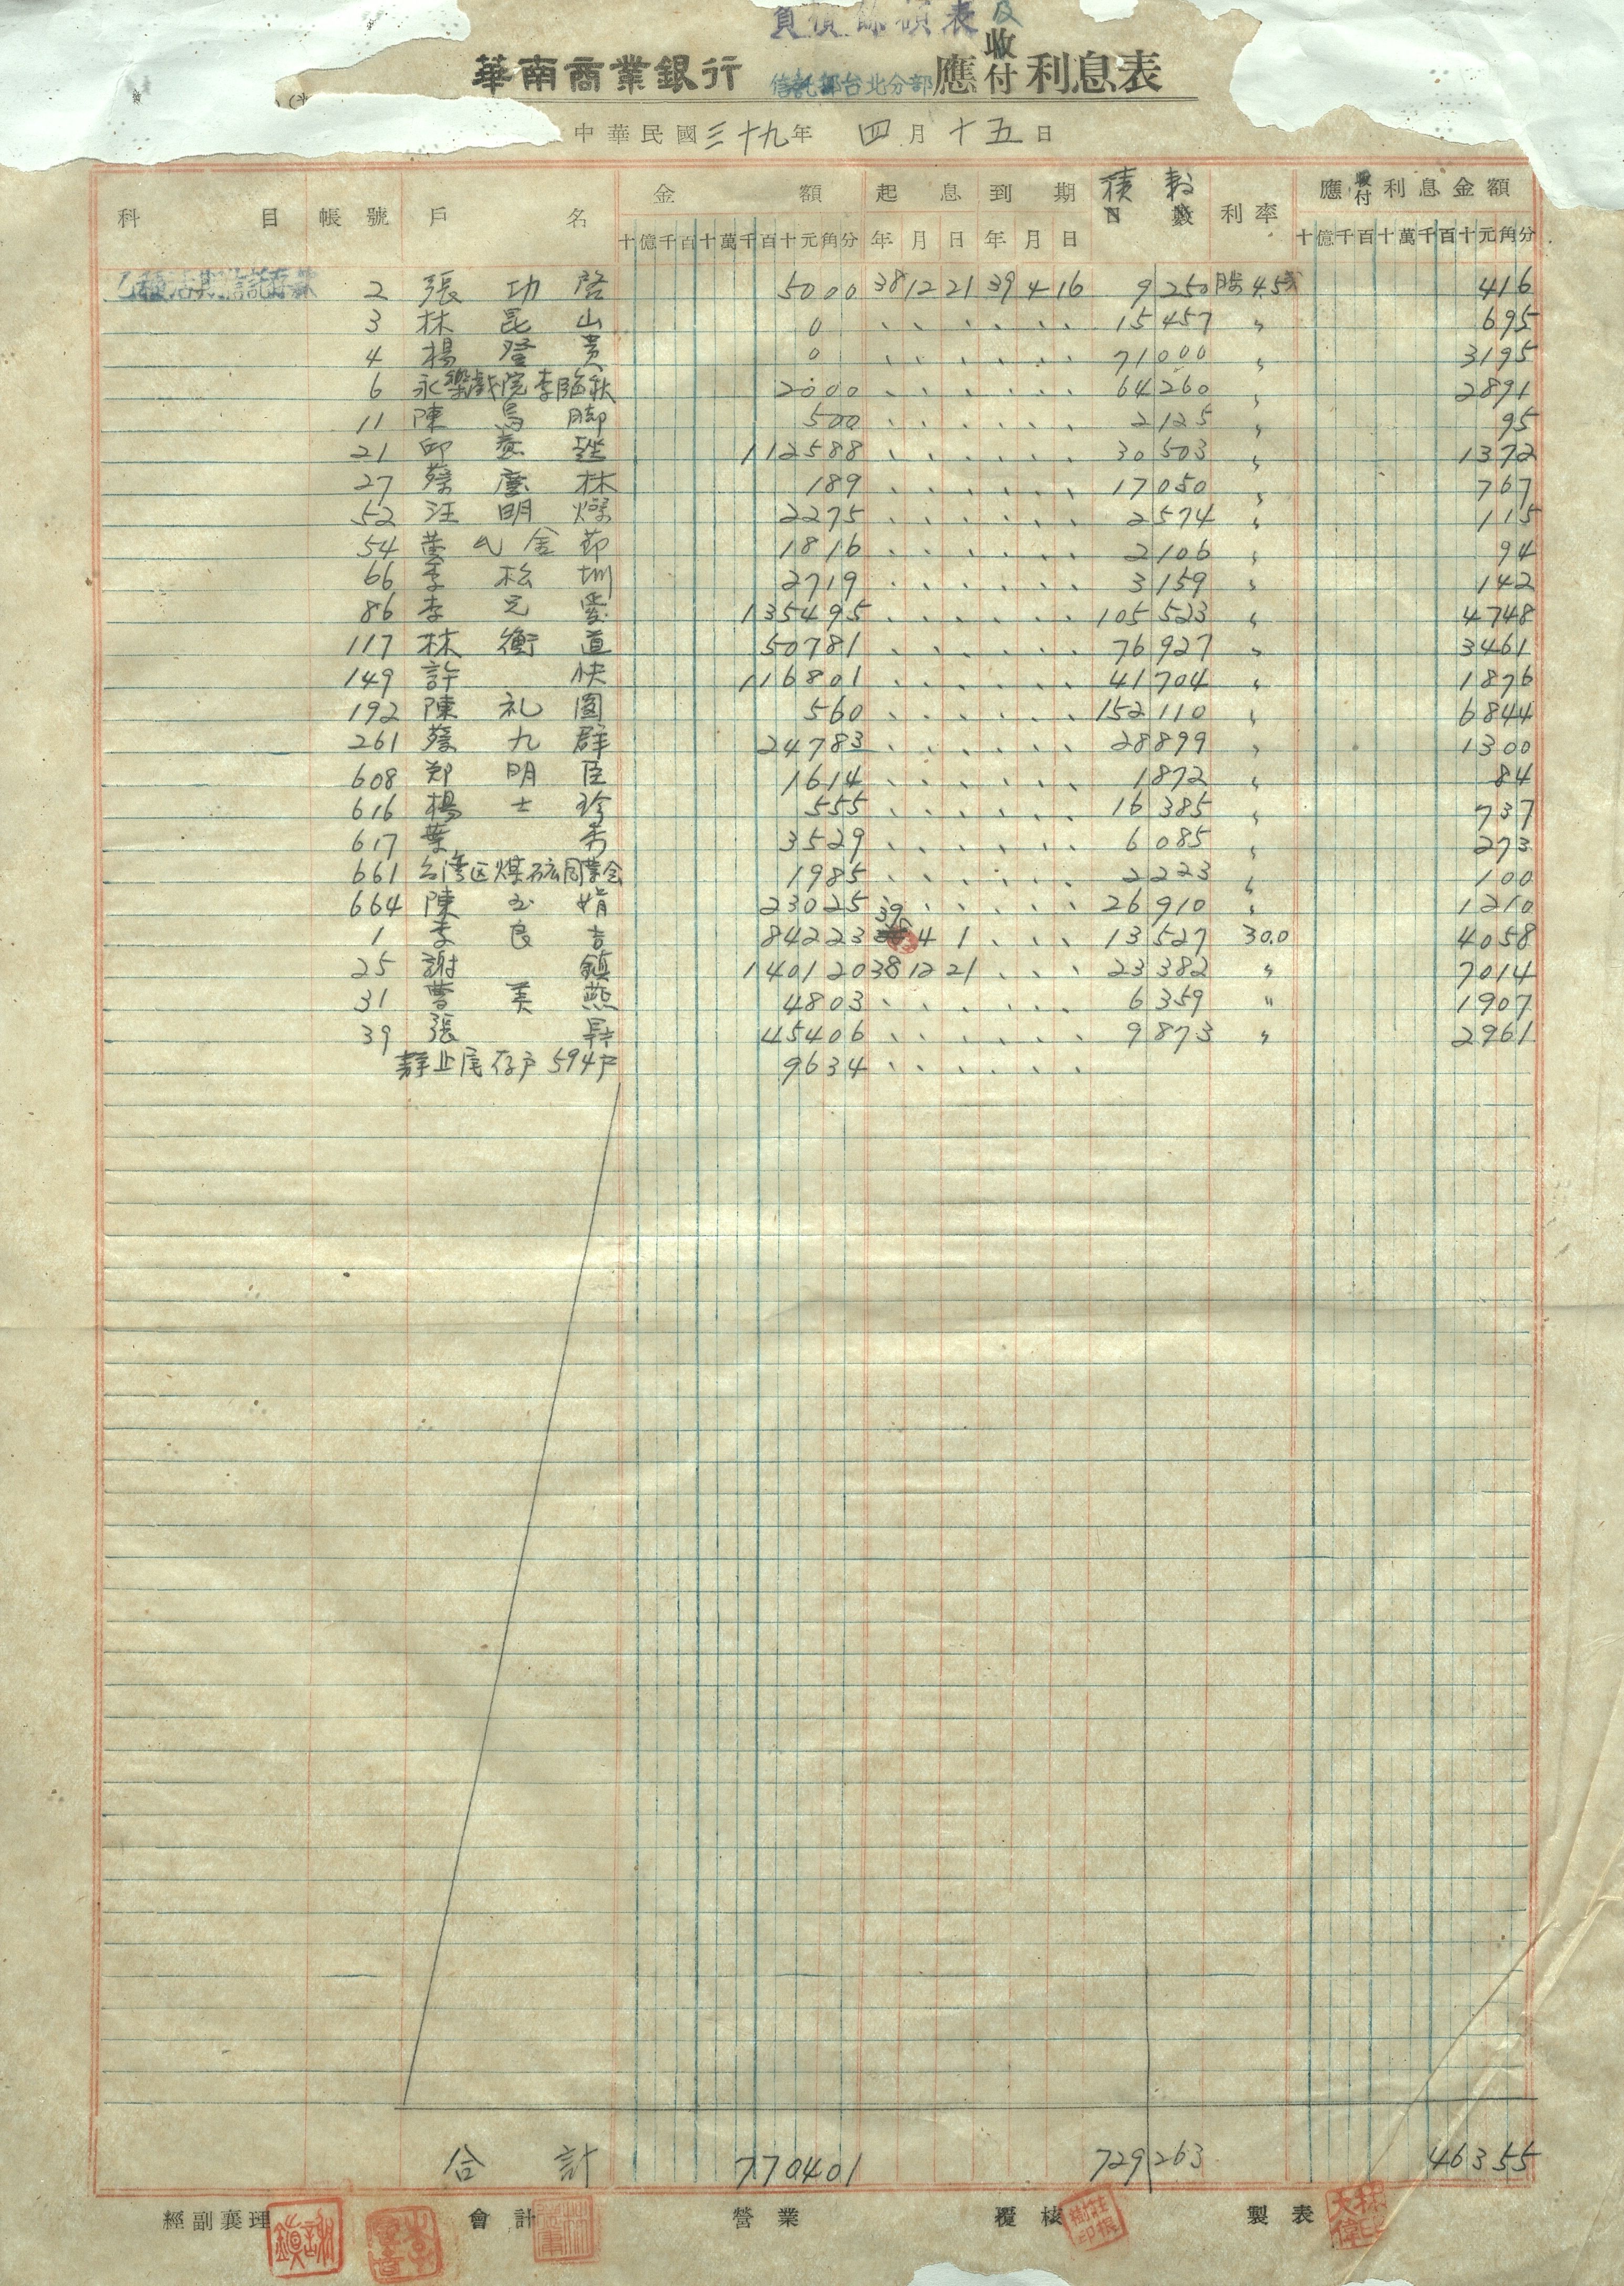 負債餘額表及
華南商業銀行 信託部台北分部 應收付利息表
中華民國三十九年 四月十五日
科目 帳號 戶名 金額 起息到期 積數 利率 應收付利息金額
十億千百十萬千百十元角分 年月日 年月日 日數 十億千百十萬千百十元角分
乙種活期信託存款 2 張功啓 5000 38 12 21 39 4 16 9250 月息4.5
3 林昆山 0 、 、 、 、 、 、 15457 〃 695
4 楊登貴 0 、 、 、 、 、 、 71000 〃 3195
6 永樂戲院李 2000 、 、 、 、 、 、 64260 〃 2891
11 陳烏脚 500 、 、 、 、 、 、 2125 〃 95
21 邱 112588 、 、 、 、 、 、 30503 〃 1372
27 蔡慶林 189 、 、 、 、 、 、 17050 〃 767
52 汪明燦 2275 、 、 、 、 、 、 2574 〃 115
54 金節 1816 、 、 、 、 、 、 2106 〃 94
66 李松圳 2719 、 、 、 、 、 、 3159 〃 142
86 李元 135495 、 、 、 、 、 、 105523 〃 4748
117 林衡道 50781 、 、 、 、 、 、 76927 〃 3461
149 許快 116801 、 、 、 、 、 、 41704 〃 1876
192 陳礼圖 560 、 、 、 、 、 、 152110 〃 6844
261 蔡九群 24783 、 、 、 、 、 、 28899 〃 1300
608 郑明臣 1614 、 、 、 、 、 、 1872 〃 84
616 楊士珍 555 、 、 、 、 、 、 16385 〃 737
617 葉秀 3529 、 、 、 、 、 、 6085 〃 273
661 台湾区煤礦同業会 1985 、 、 、 、 、 、 2223 〃 100
664 陳玉娟 23025 、 、 、 、 、 26910 〃 1210
1 李良吉 84223 39 4 1 、 、 、 13527 30.0 4058
25 謝鎮 140120 38 12 21 、 、 、 23382 〃 7014
31 曹美燕 4803 、 、 、 、 、 6359 〃 1907
39 張 45406 、 、 、 、 、 、 9873 〃 2961
靜止尾存戶 594戶 9634 、 、 、 、 、 、
合計 770401 729263 46355
經副襄理 會計 營業 覆核 製表